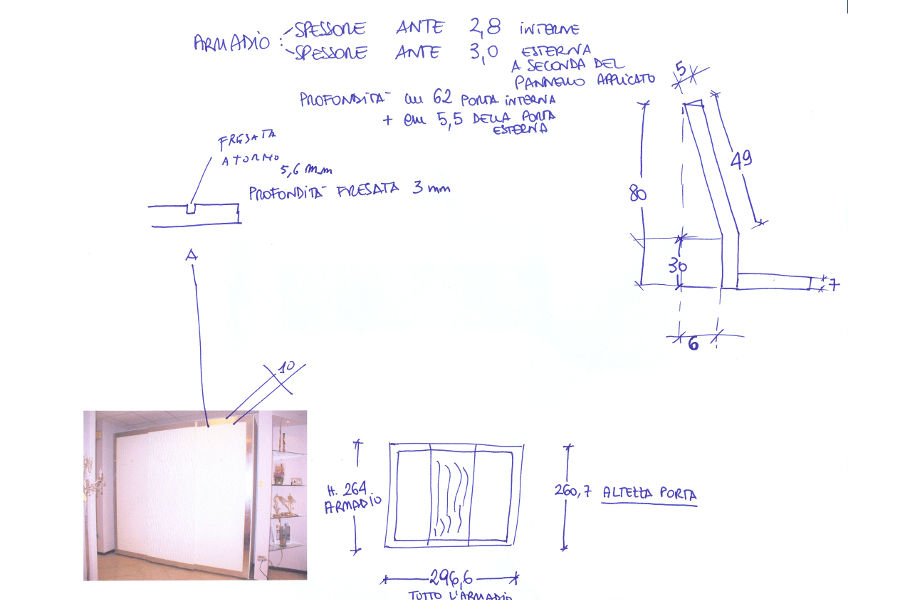 ARMADIO: SPESSORE ANTE 2,8 INTERNE
SPESSORE ANTE 3,0 ESTERNA
A SECONDA DEL
PANNELLO APPLICATO
PROFONDITA' cm 62 PORTA INTERNA
+ cm 5,5 DELLA PORTA
ESTERNA
FRESATA
ATORNO
5,6 mm
PROFONDITA' FRESATA 3 mm
A
10
5
49
80
30
7
6
H. 264
ARMADIO
260,7 ALTEZZA PORTA
296,6
TUTTO L'ARMADIO